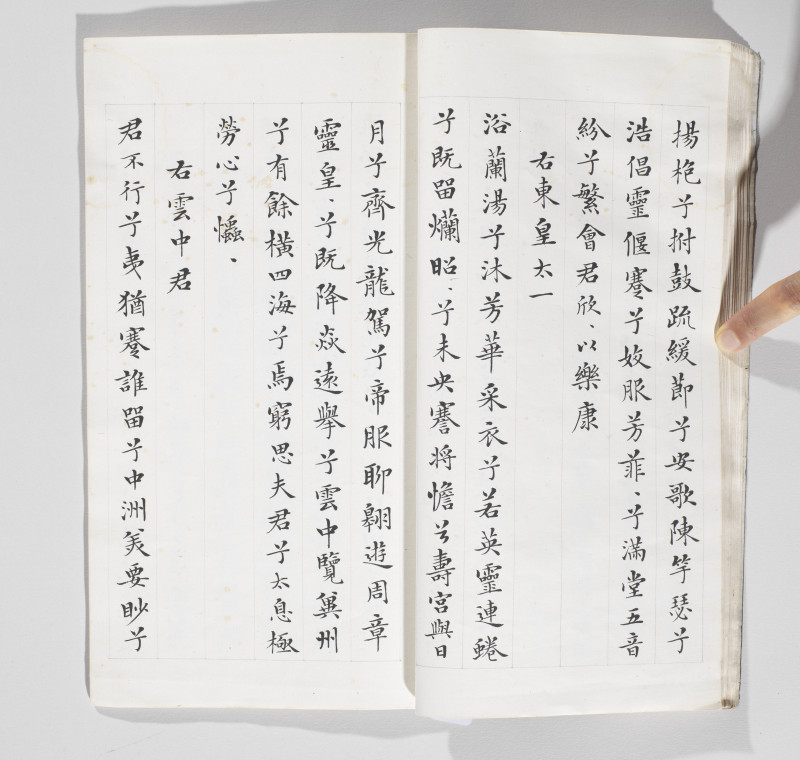 揚枹兮拊鼓疏緩節兮安歌陳竽瑟兮
浩倡靈偃蹇兮姣服芳菲、兮滿堂五音
紛兮繁會君欣、以樂康
右東皇太一
浴蘭湯兮沐芳華采衣兮若英靈連蜷
兮既留爛昭、兮未央謇將憺兮壽宮與日
月兮齊光龍駕兮帝服聊翱遊周章
靈皇、兮既降焱遠舉兮雲中覽冀州
兮有餘橫四海兮焉窮思夫君兮太息極
勞心兮㦜、
右雲中君
君不行兮夷猶蹇誰留兮中洲美要眇兮